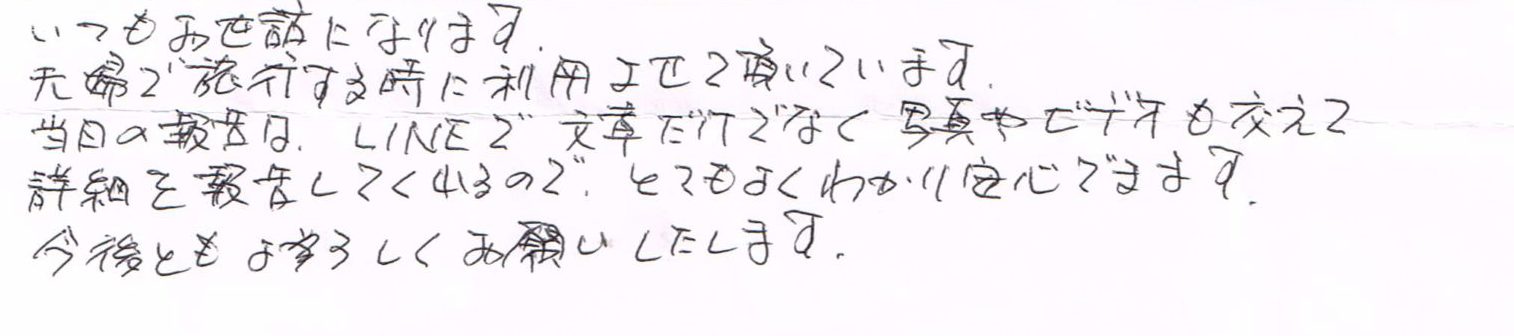 いつもお世話になります.
夫婦で旅行する時に利用させて頂いています.
当日の報告は、LINEで文章だけでなく写真やビデオも交えて
詳細を報告してくれるので、とてもよくわかり安心できます.
今後ともよろしくお願いしたします.